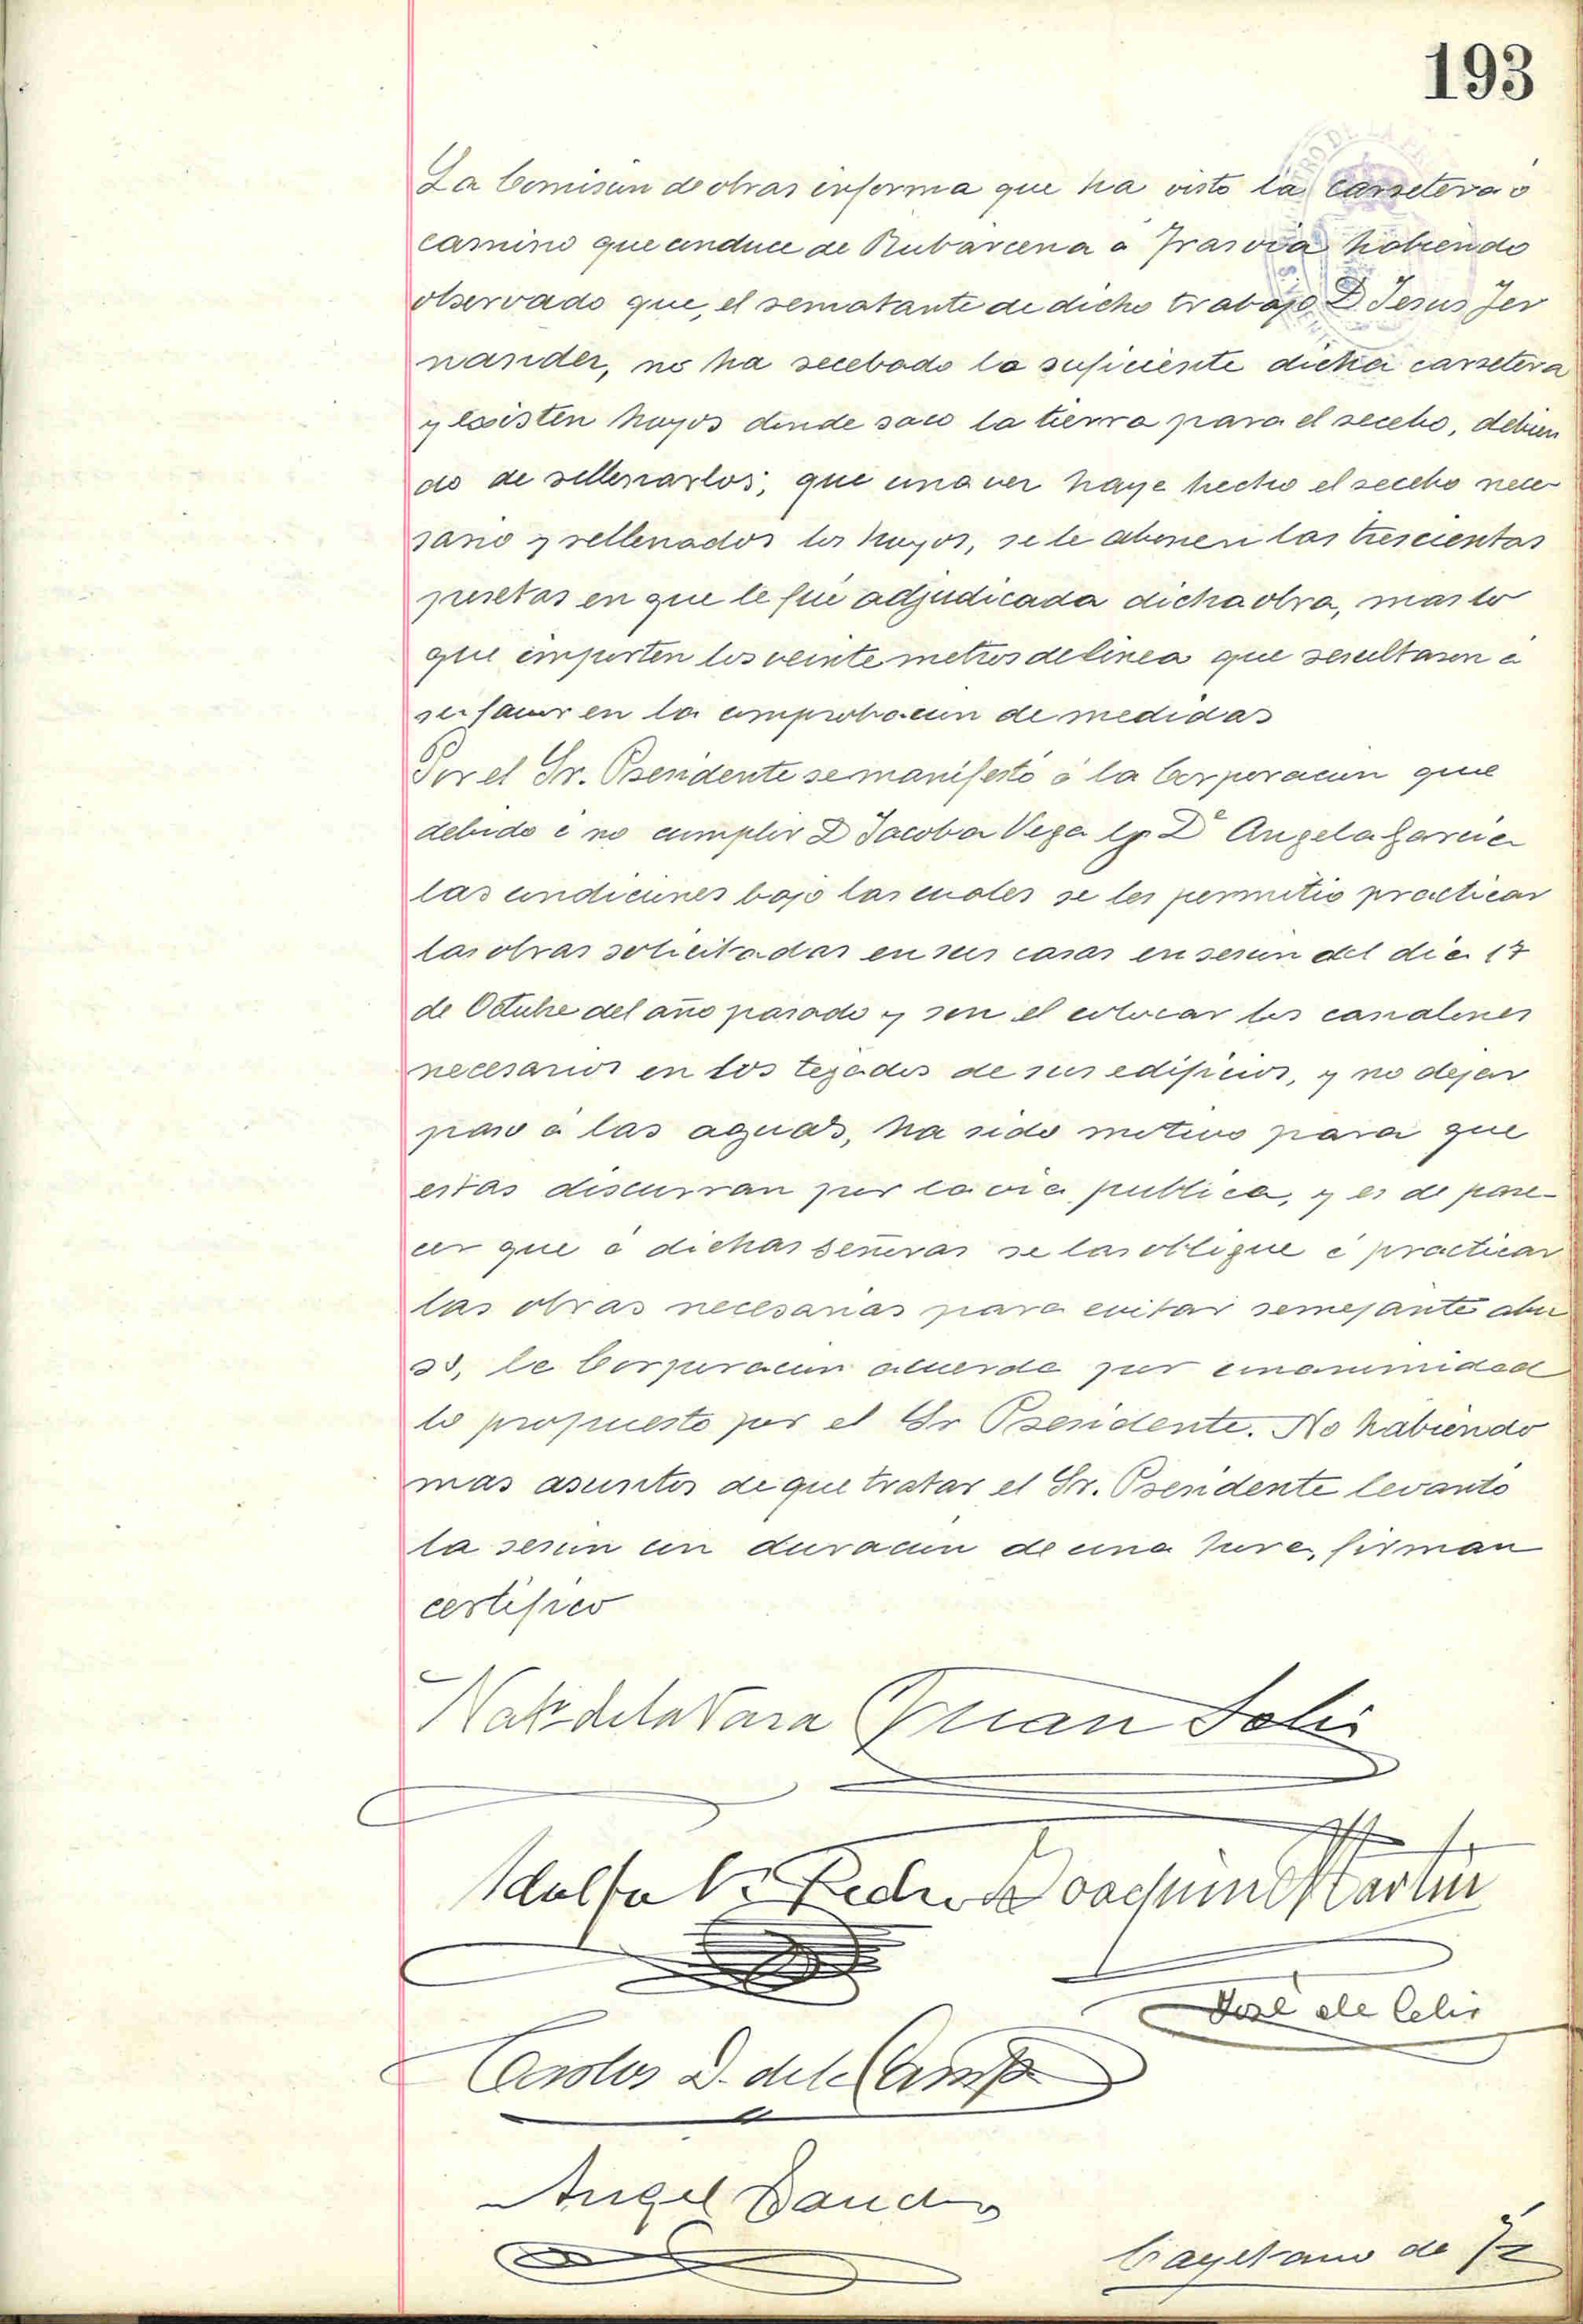 193
La Comision de obras informa que ha visto la carretera ó
camino que conduce de Rubarcena a Frasvia habiendo
observado que, el rematante de dicho trabajo D Jesus Fer
nandez, no ha recebado lo suficiente dicha carretera
y existen hoyos donde saco la tierra para el recebo, debien
do de rellenarlos, que una vez haya hecho el recebo nece
sario y rellenados los hoyos, se le abonen las trescientas
pesetas en que le fue adjudicada dicha obra, mas lo
que importen los veinte metros de linea que resultaron a
su favor en la comprobacion de medidas
Por el Sr. Presidente se manifestó á la Corporacion que
debido a no cumplir Dª Jacoba Vega y Dª Angela Garcia
las condiciones bajo las cuales se les permitio practicar
las obras solicitadas en sus casas en sesion del dia 17
de Octubre del año pasado y son el colocar los canalones
necesarios en los tejados de sus edificios, y no dejar
paso a las aguas, ha sido motivo para que
estas discurran por la via publica, y es de pare-
cer que a dichas señoras se las obligue a practicar
las obras necesarias para evitar semejante abu
so, la Corporacion acuerda por unanimidad
lo propuesto por el Sr Presidente. No habiendo
mas asuntos de que tratar el Sr. Presidente levantó
la sesion con duracion de una hora, firman
certifico
de la Vara Juan Solis
Adolfo V. Pedro Joaquin Martin
José de Celis
Carlos D. de la Campa
Angel Sanchez
Cayetano de